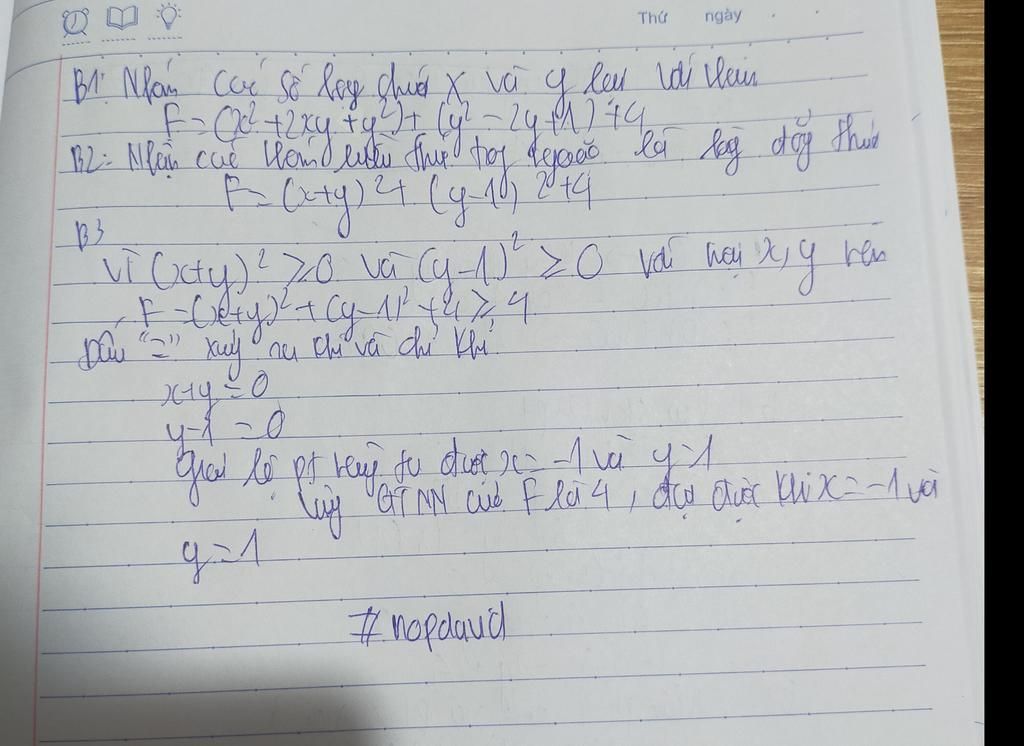 Thứ ngày
B1: Nhóm các số hạng chứa x và y lại với nhau
F = (x² + 2xy + y²) + (y² - 2y + 1) + 4
B2: Nhận các thức trong ngoặc là hằng đẳng thức
F = (x+y)² + (y-1)² + 4
B3
Vì (x+y)² ≥ 0 và (y-1)² ≥ 0 với mọi x, y nên
F = (x+y)² + (y-1)² + 4 ≥ 4
Dấu "=" xảy ra khi và chỉ khi
x+y = 0
y-1 = 0
Giải hệ pt này ta được x = -1 và y = 1
Vậy GTNN của F là 4, đạt được khi x = -1 và
y = 1
# nopdavid